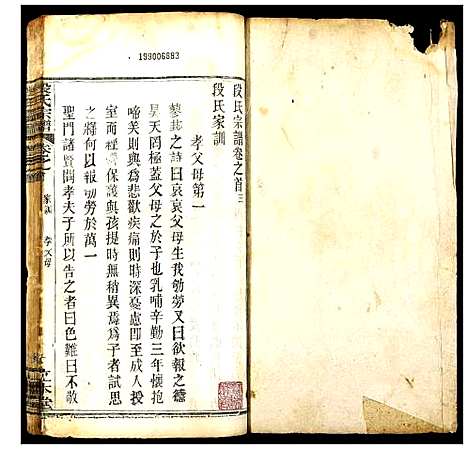 段氏宗譜卷之首三
段氏家訓
孝父母第一
蓼莪之詩曰哀哀父母生我劬勞又曰欲報之德
昊天罔極蓋父母之於子也乳哺辛勤三年懷抱
啼笑則與為悲歡疾痛則時深憂慮即至成人授
室而經保護與孩提時無稍異焉為子者試思
之將何以報劬勞於萬一
聖門諸賢問孝夫子所以告之者曰色難曰不敬
段氏宗譜
家訓
孝父母
199006883